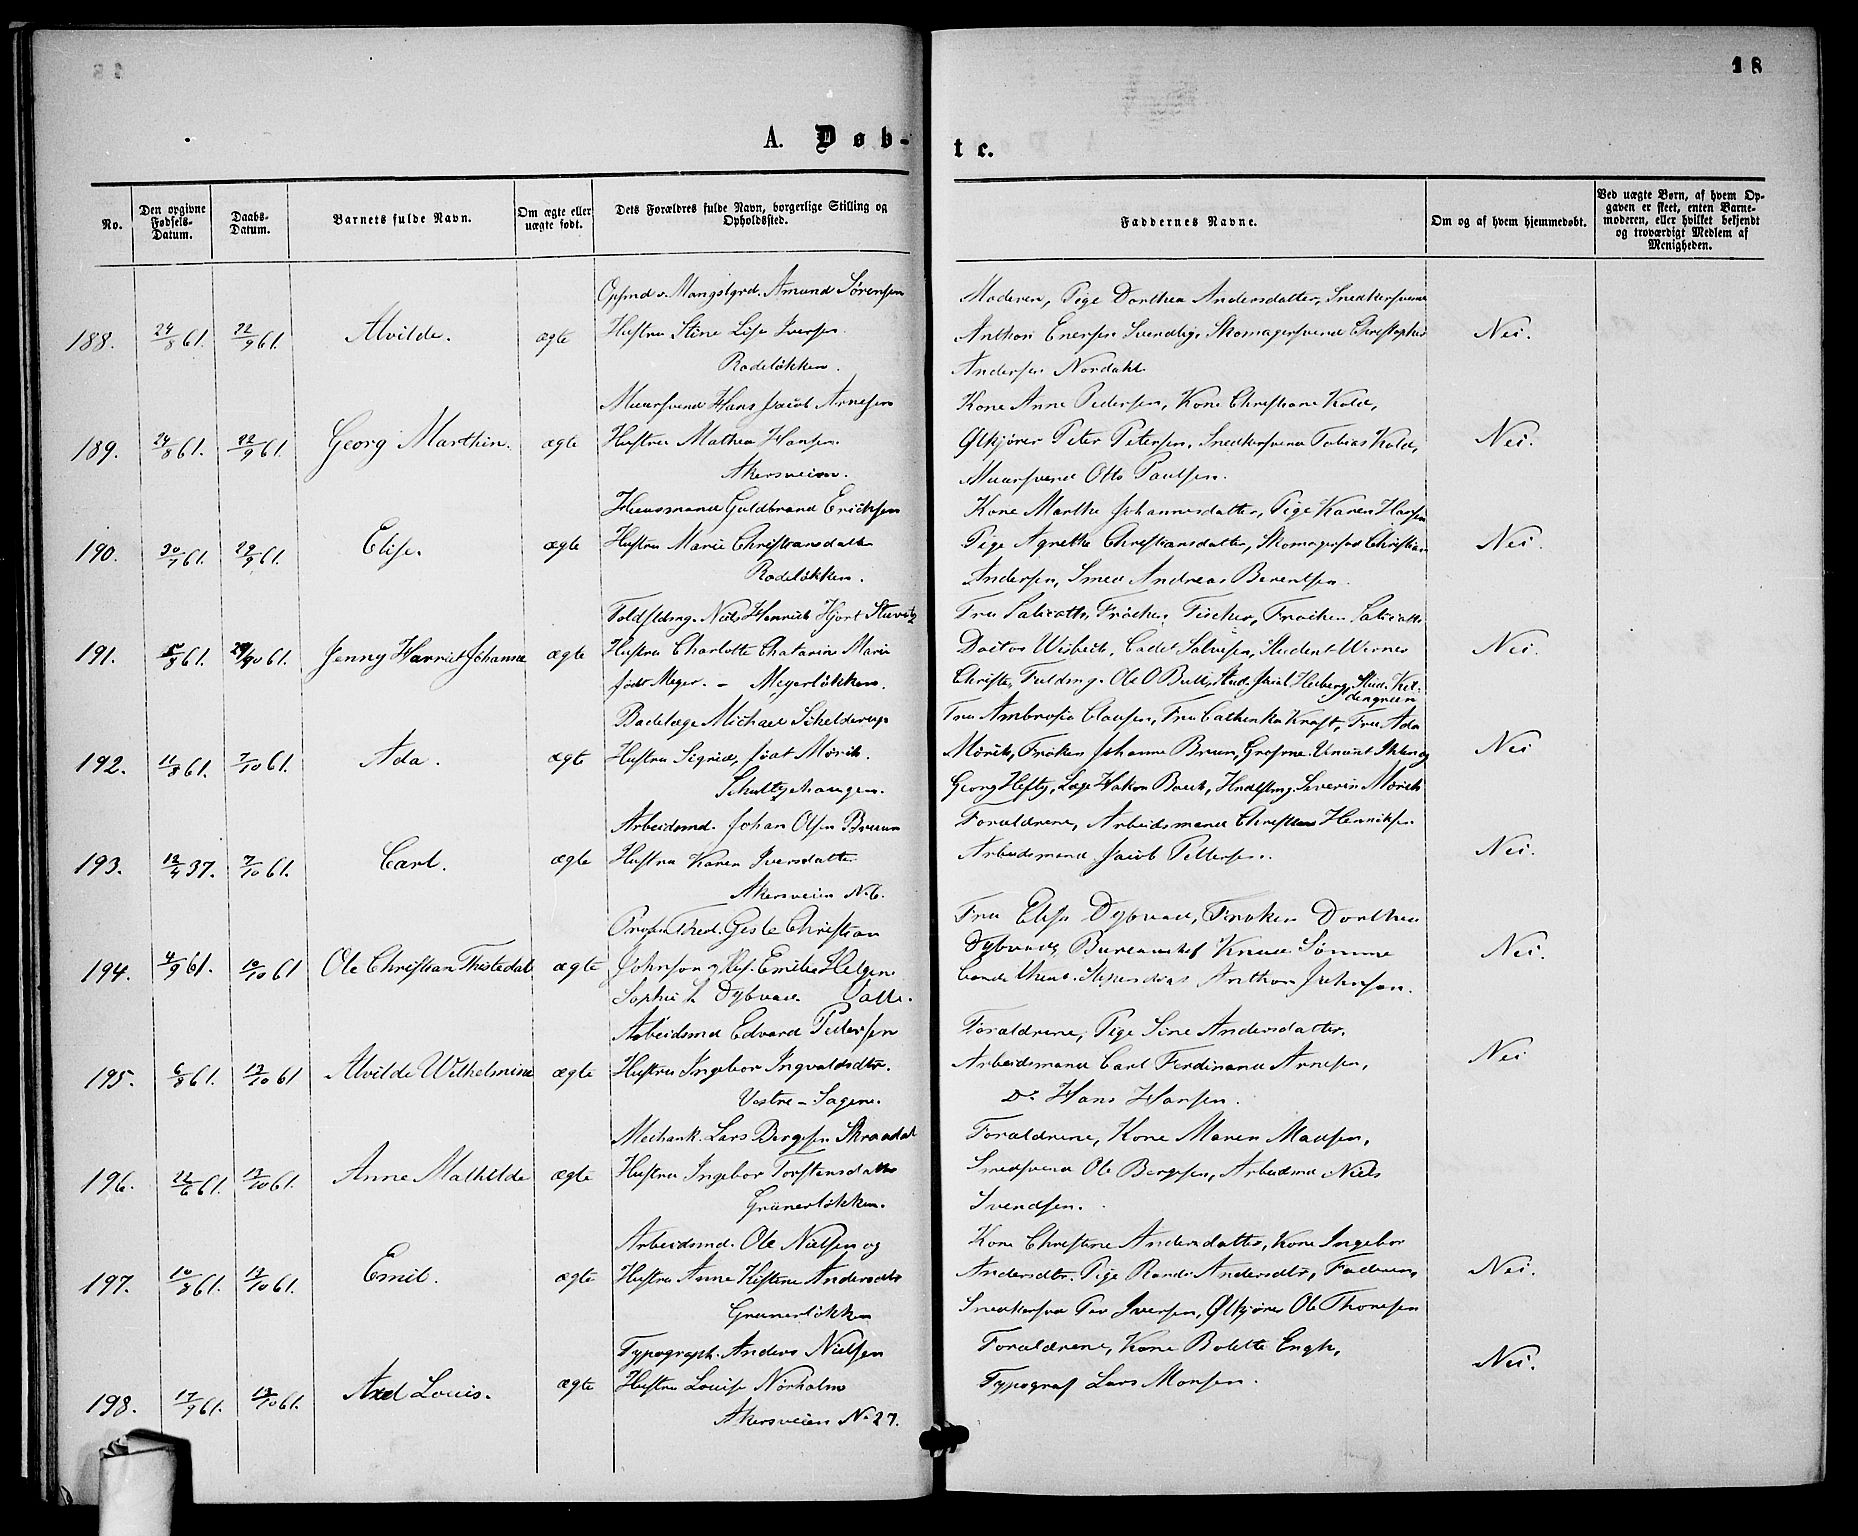 18
A. Døb-
te.
No.
Den opgivne Fødsels-Datum.
Daabs-Datum.
Barnets fulde Navn.
Om ægte eller uægte født.
Dets Forældres fulde Navn, borgerlige Stilling og Opholdssted.
Faddernes Navne.
Om og af hvem hjemmedøbt.
Ved uægte Børn, af hvem Opgaven er skeet, enten Barnemoderen, eller hvilket bekjendt og troværdigt Medlem af Menigheden.
Amund Sørensen
Moderen, Pige Dorthea Andersdatter, Snedkersvend
188. 24/8 61. 22/9 61. Alvilde. ægte Hustru Stine Lise Iversen. Anthon Enersen Skomagersvend Christopher Nei.
Rodeløkken. Andersen Nordahl
Muursvend Hans Jacob Arnesen Kone Anne Pedersen, Kone Christiane Kold,
189. 24/8 61. 22/9 61. Georg Marthin. ægte Hustru Mathea Hansen. Ølkjører Peter Petersen, Snedkersvend Tobias Kold, Nei.
Akersveien. Muursvend Otto Paulsen.
Huusmand Guldbrand Ericksen Kone Marthe Johannesdatter, Pige Karen Hansen
190. 30/7 61. 29/9 61. Elise. ægte Hustru Marie Christiansdatter Pige Agnethe Christiansdatter, Skomagersvd Christian Nei.
Rodeløkken. Andersen, Smed Andreas Berentsen.
Niels Henrich Hjort
191. 5/9 61. 61. Jenny Harriet Johanne ægte Hustru Charlotte Chatarina Maria Doctor Wisbech, Cadet Salvesen, Student Werner Nei.
født Meyer. – Meyerløkken. Christie, Ole O Bull, Stud. Jacob Heiberg, Stud.
Michael Schelderup Fru Ambrosia Clausen, Fru Cathinka Kraft, Fru Ada
192. 11/8 61. 7/10 61. Ada. ægte Hustru Sigrid, født Mørch. Mørch, Frøken Johanne Bruun, Nei
Schultzehaugen. Georg Hefty, Læge Hakon Severin Mørch
Arbeidsmd. Johan Olsen Bruun Forældrene, Arbeidsmand Christian Henriksen
193. 12/4 37. 7/10 61. Carl. ægte Hustru Karen Iversdatter Arbeidsmand Jacob Pettersen. Nei.
Akersveien No 6.
Gisle Christian Fru Elise Dybwad, Frøken Dorthea
194. 4/9 61. 10/10 61 Ole Christian Thistedal ægte Johnson og Hus. Emilie Helgine Dybwad, Bureauchef Knud Sømme Nei.
Sophie Dybwad. Anthon Johnson.
Arbeidsmd Edvard Pedersen Forældrene, Pige Sine Andersdatter,
195. 6/8 61. 13/10 61 Alvilde Wilhelmine ægte Hustru Ingebor Ingvaldsdtr. Arbeidsmand Carl Ferdinand Arnesen, Nei
Vestre – Sagene. Do Hans Hansen.
Mechank. Lars Bergesen Forældrene, Kone Maren Madsen,
196. 22/6 61. 13/10 61. Anne Mathilde ægte Hustru Ingebor Torstensdatter Smedsvend Ole Bergesen, Arbeidsmd Niels
Grünerløkken. Svendsen.
Arbeidsmd. Ole Nielsen og Kone Christine Andersdatter, Kone Ingebor
197. 10/8 61. 13/10 61. Emil. ægte Hustru Anne Kistine Andersdtr Andersdtr. Pige Randi Andersdtr, Faderen, Nei.
Grünerløkken Snedkersvd Per Iversen, Ølkjører Ole Thoresen
Typograph. Anders Nielsen Forældrene, Kone Bolette Engh,
198. 17/9 61. 13/10 61. Axel Louis. ægte Hustru Louise Nørholm Typograf Lars Monsen. Nei.
Akersveien No 27.